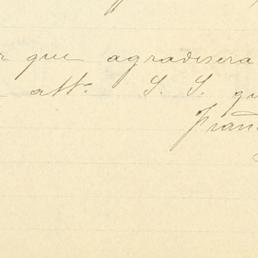 que agradisera
att.ª S. S. q
Fran